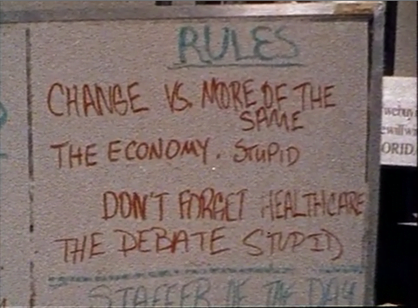 RULES
CHANGE VS. MORE OF THE
SAME
THE ECONOMY. STUPID
DON'T FORGET HEALTHCARE
THE DEBATE STUPID
STAFFER OF THE DAY